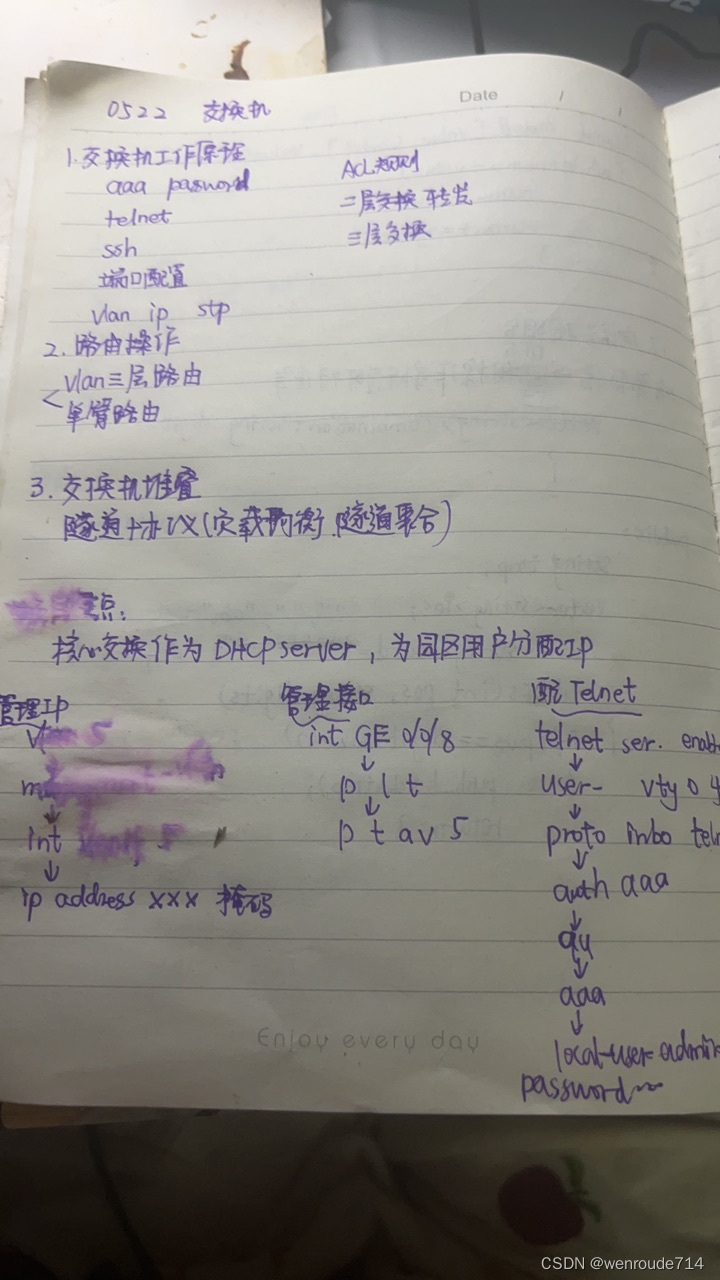 Date / /
0522 交换机
1.交换机工作原理
aaa password
telnet
ssh
端口配置
vlan ip stp
ACL规则
二层交换 转发
三层交换
2.路由操作
vlan三层路由
单臂路由
3.交换机堆叠
隧道协议(负载均衡 隧道聚合)
点:
核心交换作为DHCP server,为园区用户分配IP
管理IP
5
int 5
ip address xxx 掩码
管理接口
int GE 0/0/8
p l t
p t av 5
配Telnet
telnet ser. enab
user- vty 0 4
proto inbo tel
auth aaa
qu
aaa
local-user admin
password
Enjoy every day
CSDN @wenroude714